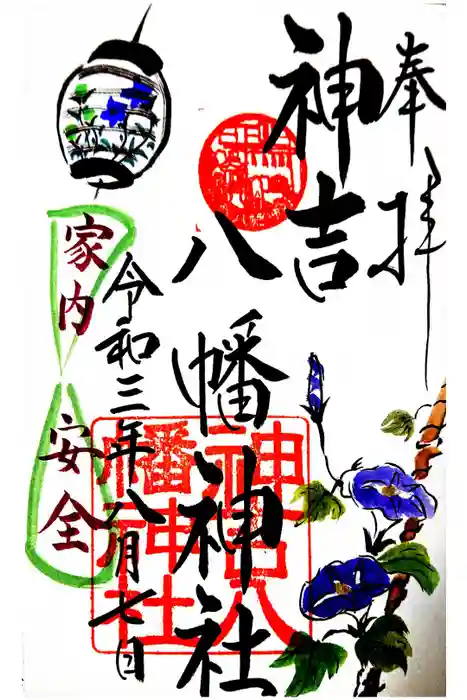 奉拝
神吉
八幡神社
令和三年八月七日
家内
安全
神吉八
幡神社